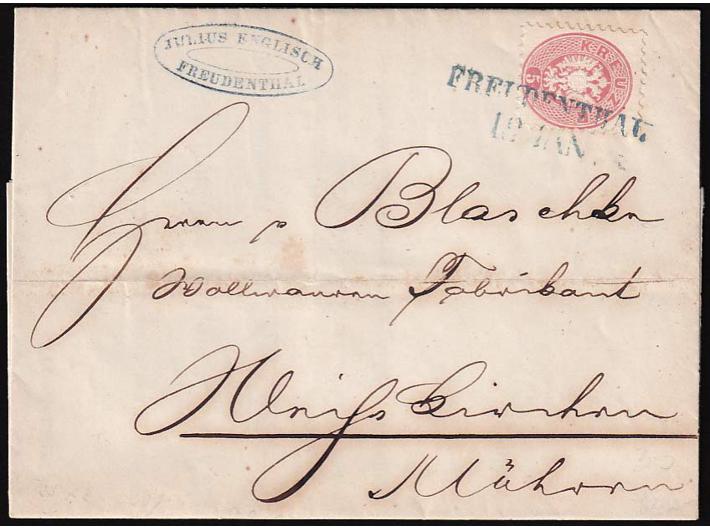 JULIUS ENGLISCH
FREUDENTHAL
5 KREUZ
FREUDENTHAL
12 JAN
Herrn Blaschke
Wollwaaren Fabrikant
Weißkirchen
Mähren